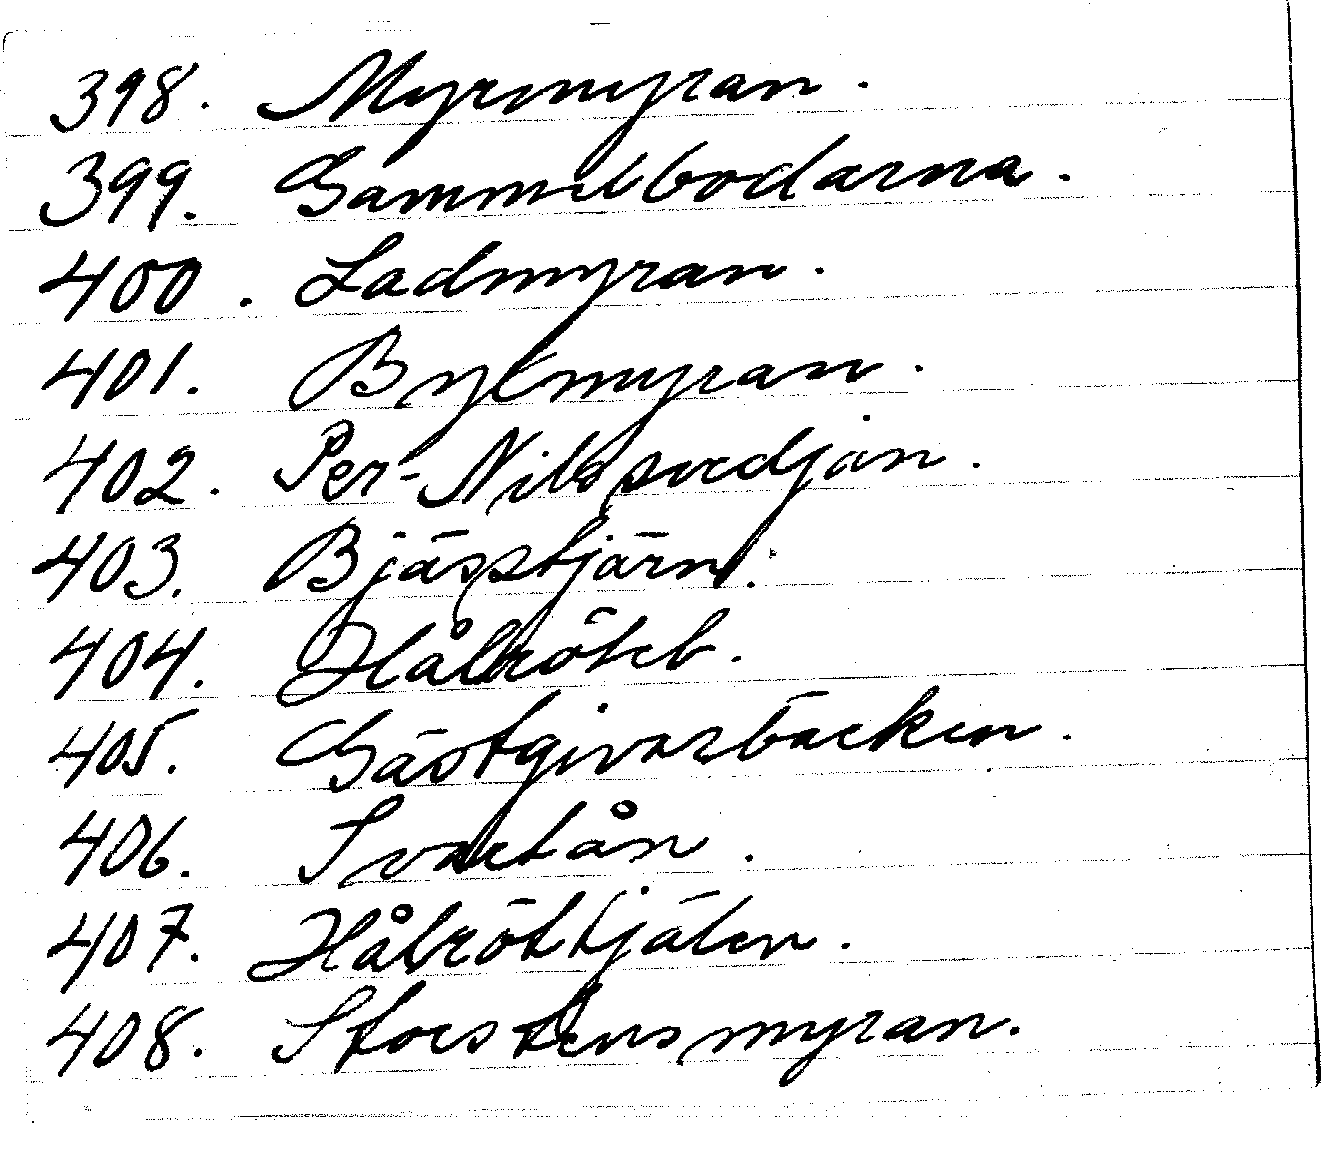 398. Myrmyran.
399. Gammelbodarna.
400. Ladmyran.
401. Bylmyran.
402. Per-Nilssvedjan.
403. Bjässtjärn.
404. Hålrötet.
405. Gästgivarbacken.
406. Svartån.
407. Hålröttjälen.
408. Storstensmyran.